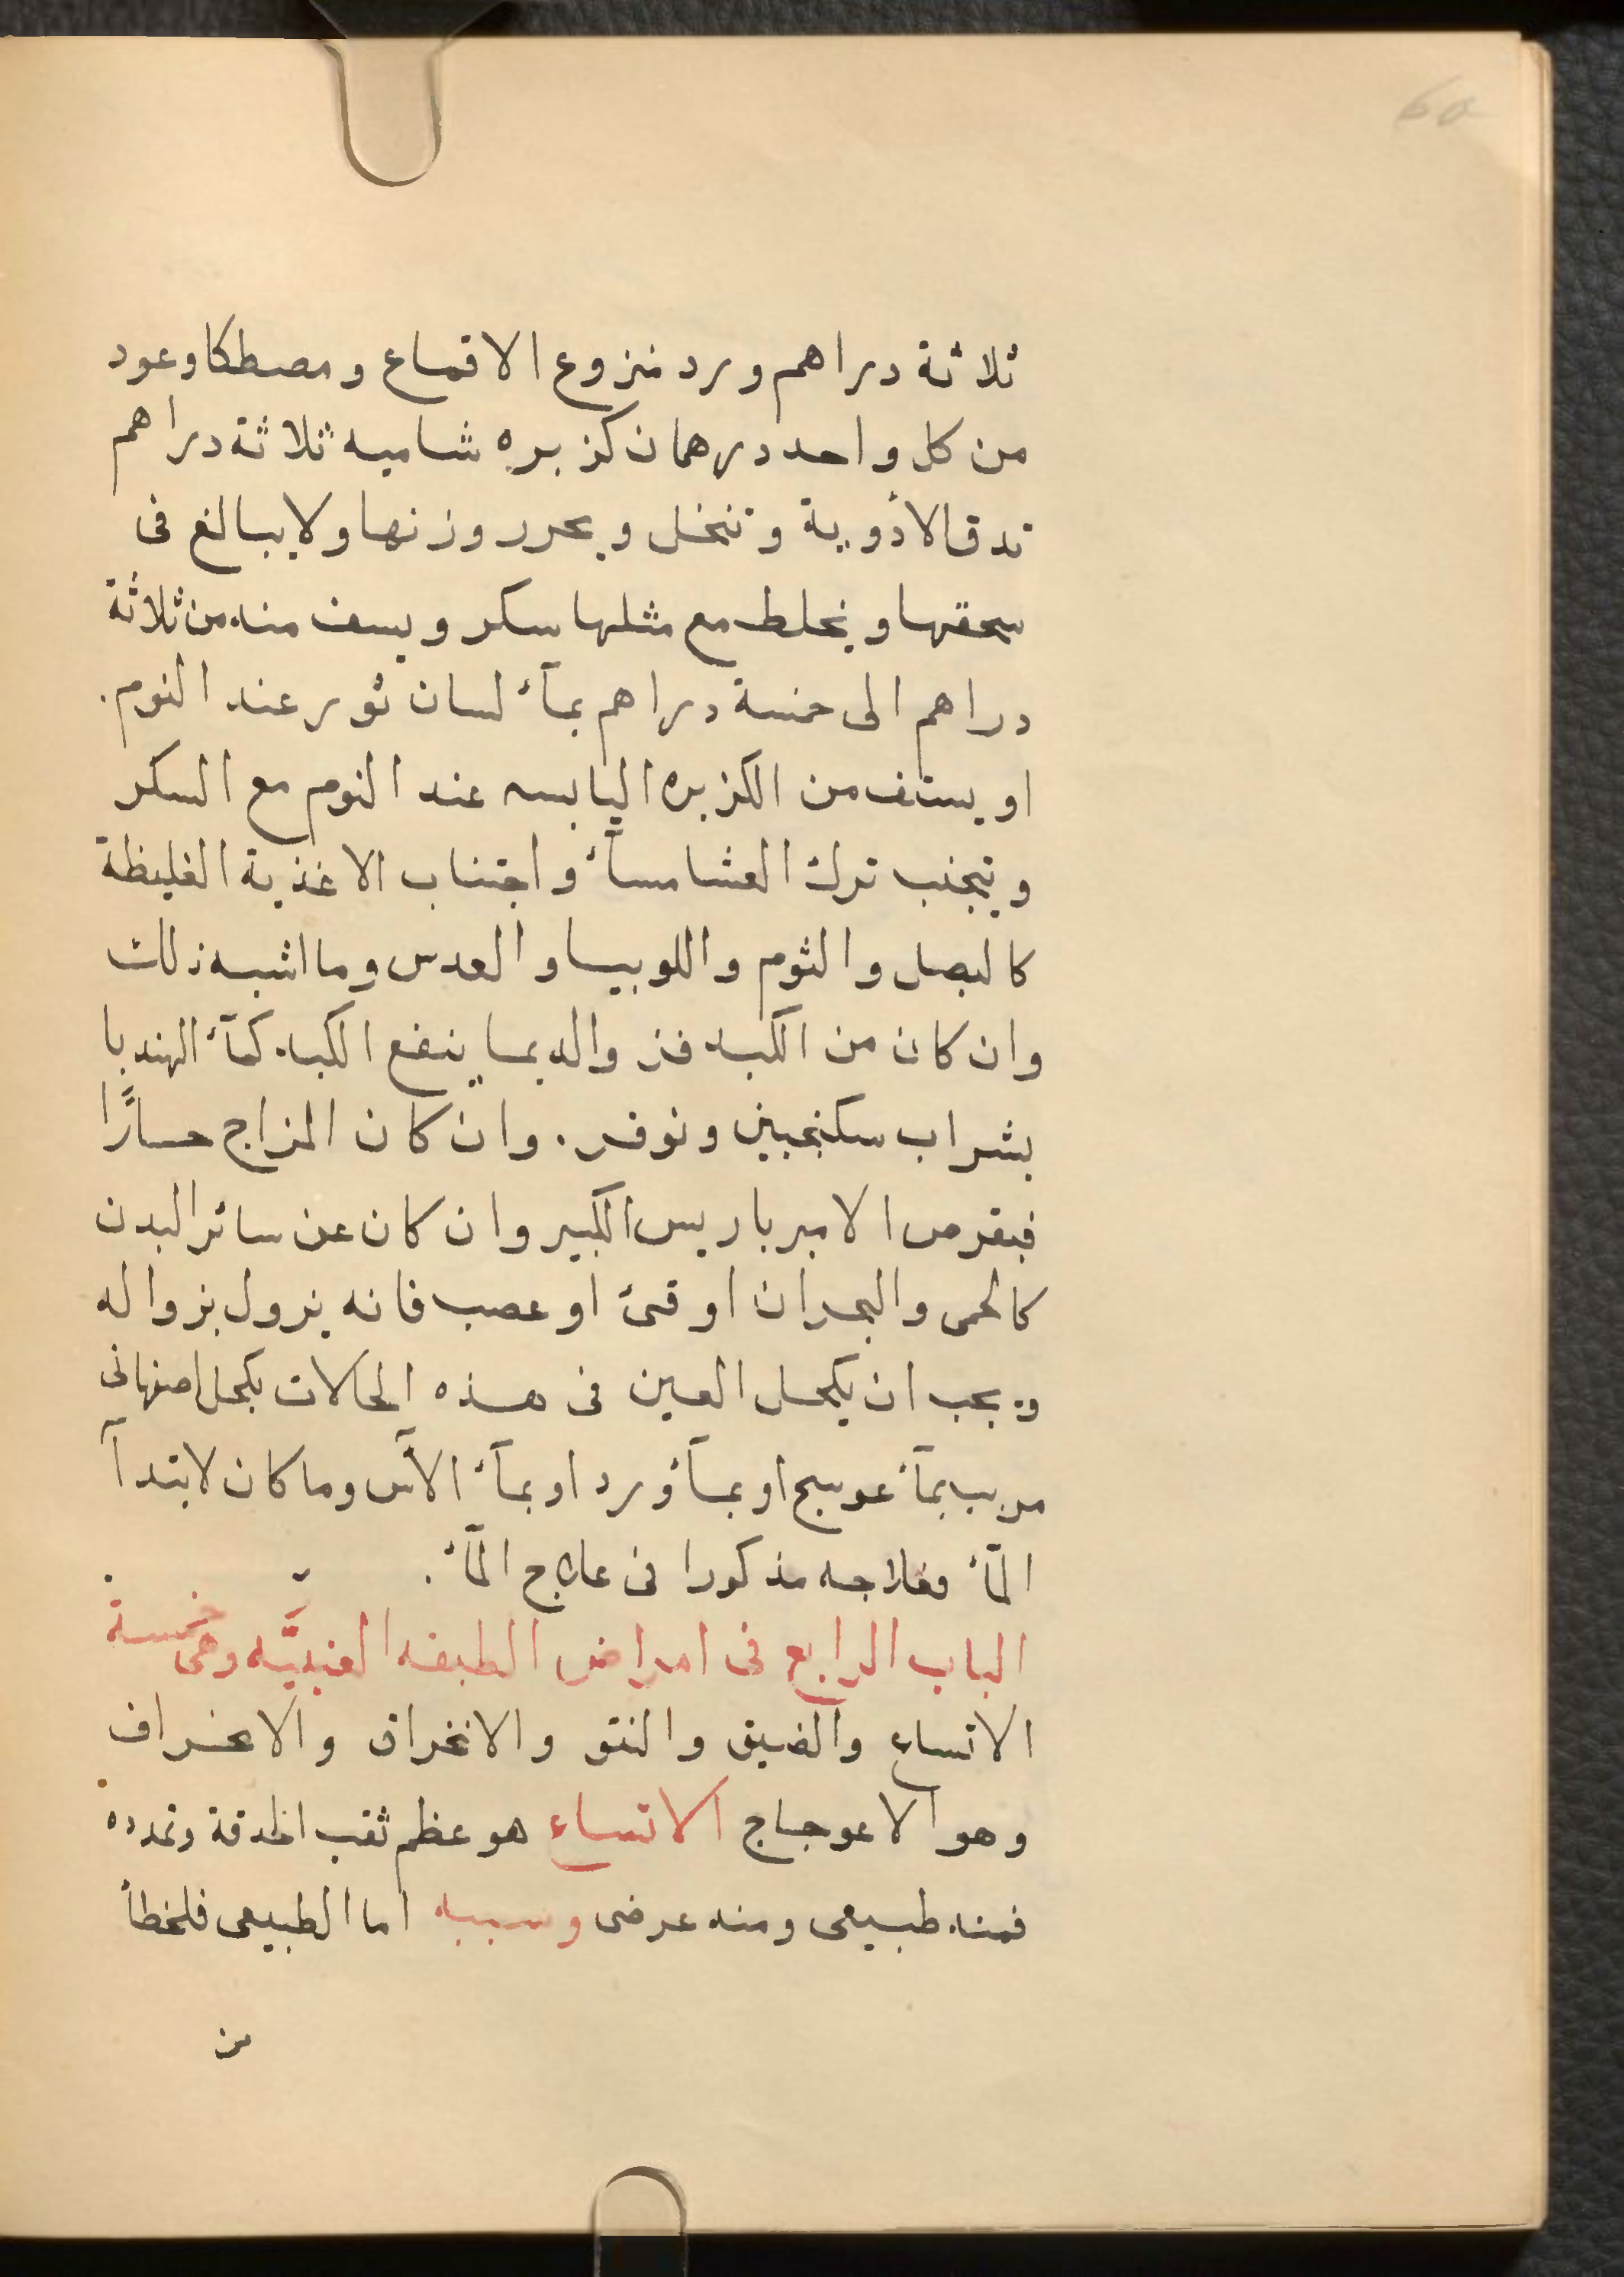 60
ثلاثة دراهم ورد منزوع الاقماع ومصطكا وعود
من كل واحد درهمان كزبره شاميه ثلاثة دراهم
تدق الأدوية وتنخل ويحرر وزنها ولا يبالغ فى
سحقها ويخلط مع مثلها سكر ويسف منه من ثلاثة
دراهم الى خمسة دراهم بمآء لسان ثور عند النوم.
او يستف من الكزبره اليابسه عند النوم مع السكر
ويتجنب ترك العشا مسآء واجتناب الاغذية الغليظة
كالبصل والثوم واللوبيا والعدس وما اشبه ذلك
وان كان من الكبد فزواله بما ينفع الكبد كمآء الهندبا
بشراب سكنجبين ونوفر. وان كان المزاج حسارًا
فبقرص الامبرباريس الكبير وان كان عن سائر البدن
كالحمى والبحران او قىء او عصب فانه يزول بزواله
ويجب ان يكحل العين فى هذه الحالات بكحل اصفهانى
مربب بمآء عوسج او بمآء ورد او بمآء الآس وما كان لابتدآ
المآء فعلاجه مذكورا فى علاج المآء.
الباب الرابع فى امراض الطبقه العنبيَّه وهى خمسة
الاتساع والضيق والنتو والانخراق والانحراف
وهو الاعوجاج الاتساع هو عظم ثقب الحدقة وتمدده
فمنه طبيعى ومنه عرضى وسببه اما الطبيعى فلخطأ
من